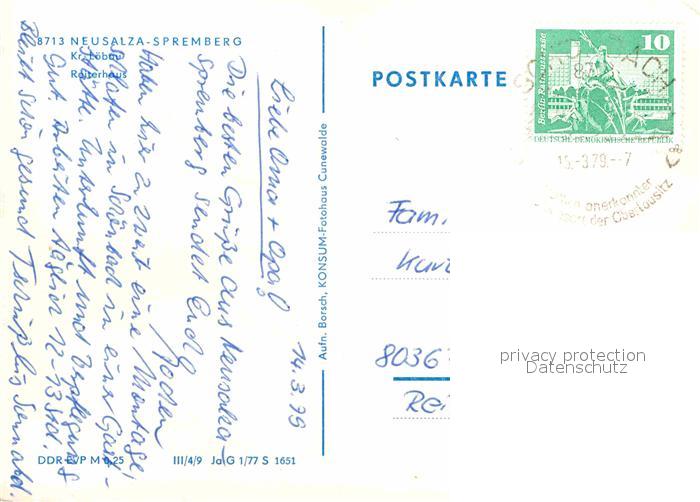 8713 NEUSALZA-SPREMBERG
Kr. Löbau
Reiterhaus
14.3.79
Liebe Oma + Opa!
Die besten Grüße aus Neusalza-
Spremberg sendet Euch
Haben hier z. Zeit eine Montage,
in Schönbach in einer Gast-
stätte. Unterkunft und Verpflegung
Gut. Arbeiten täglich 12-13 Std.
Bleibt schön gesund
DDR EVP M 0,25
III/4/9 Ja G 1/77 S 1651
Aufn. Borsch, KONSUM-Fotohaus Cunewalde
POSTKARTE
10
Berlin-Rathausstraße
DEUTSCHE DEMOKRATISCHE REPUBLIK
15.-3.79.--7
anerkannter
der Oberlausitz
Fam.
Kur
8036
Rei
privacy protection
Datenschutz